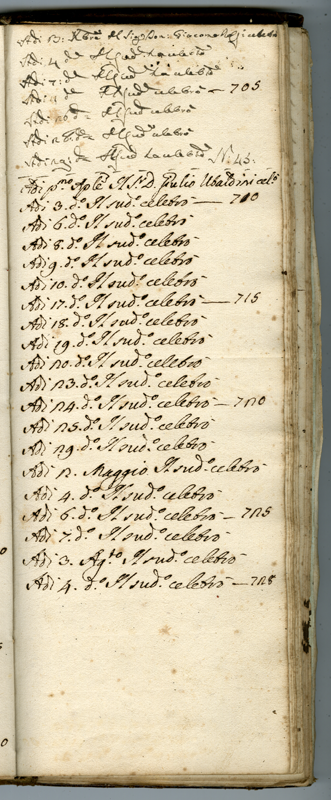 Adi 13: Xbre Il Sig: Don: Giacomo celebro
Adi: 4 do Il sud celebro
Adi 7: do Il sud celebro
Adi: 11 do Il sud celebro — 705
Adi 20 do Il sud celebro
Adi 28 do Il sud celebro
Adi 29: do Il sud celebro No 45:
Adi pmo Aple Il Sr D. Giulio Ubaldini celo
Adi 3. do Il sudo celebrò — 710
Adi 6. do Il sudo celebrò
Adi 8. do Il sudo celebrò
Adi 9. do Il sudo celebrò
Adi 10. do Il sudo celebrò
Adi 17. do Il sudo celebrò — 715
Adi 18. do Il sudo celebrò
Adi 19. do Il sudo celebrò
Adi 20. do Il sudo celebrò
Adi 23. do Il sudo celebrò
Adi 24. do Il sudo celebrò — 720
Adi 25. do Il sudo celebrò
Adi 29. do Il sudo celebrò
Adi 2. Maggio Il sudo celebrò
Adi 4. do Il sudo celebrò
Adi 6. do Il sudo celebrò — 725
Adi 7. do Il sudo celebrò
Adi 3. Ago Il sudo celebrò
Adi 4. do Il sudo celebrò — 728